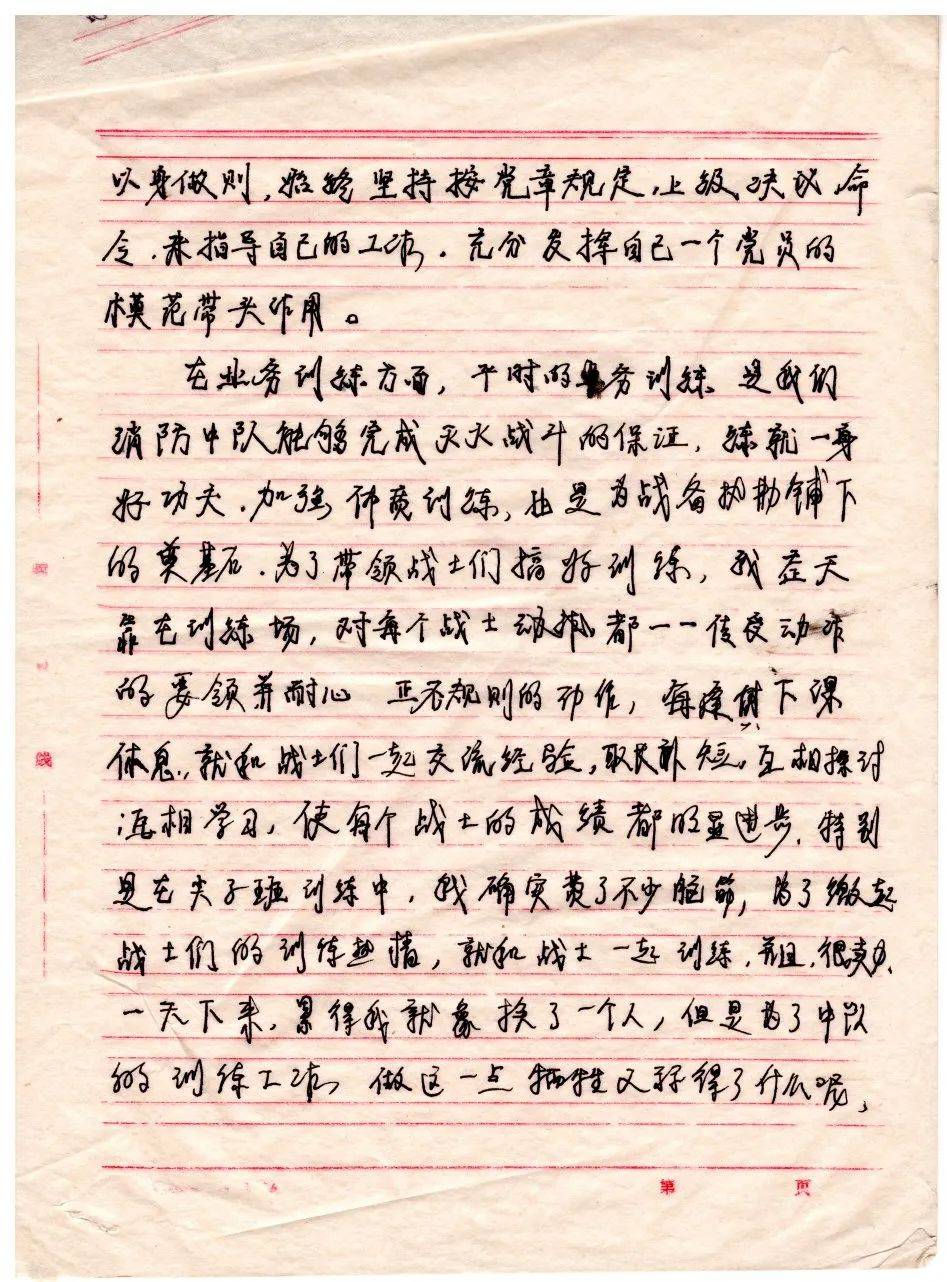 以身做则,始终坚持按党章规定,上级决议命
令,来指导自己的工作。充分发挥自己一个党员的
模范带头作用。
在业务训练方面,平时的业务训练是我们
消防中队能够完成灭火战斗的保证,练就一身
好功夫,加强体质训练,也是为战备执勤铺下
的奠基石.为了带领战士们搞好训练,我整天
靠在训练场,对每个战士动作都一一传受动作
的要领并耐心 正不规则的动作,每逢 下课
休息,就和战士们一起交流经验,取长补短,互相探讨
互相学习,使每个战士的成绩都明显进步.特别
是在尖子班训练中,我确实费了不少脑筋,为了激起
战士们的训练热情,就和战士一起训练,并且,很卖力,
一天下来,累得我就象换了一个人,但是为了中队
的训练工作,做这一点牺牲又算得了什么呢,
线
第 页